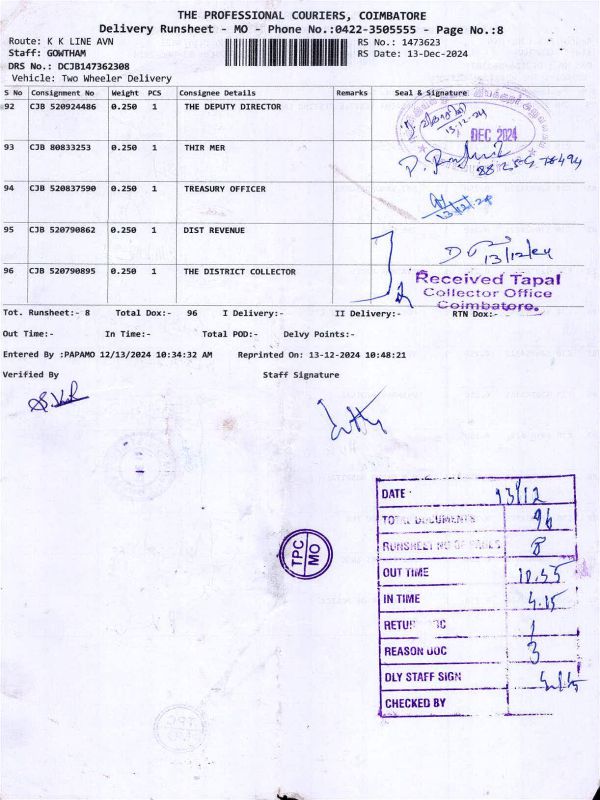 THE PROFESSIONAL COURIERS, COIMBATORE
Delivery Runsheet - MO - Phone No.:0422-3505555 - Page No.:8
Route: K K LINE AVN
RS No.: 1473623
Staff: GOWTHAM
RS Date: 13-Dec-2024
DRS No.: DCJB147362308
Vehicle: Two Wheeler Delivery
S No Consignment No Weight PCS Consignee Details Remarks Seal & Signature
92 CJB 520924486 0.250 1 THE DEPUTY DIRECTOR
13-12-24
DEC 2024
93 CJB 80833253 0.250 1 THIR MER
94 CJB 520837590 0.250 1 TREASURY OFFICER
13/12/24
95 CJB 520790862 0.250 1 DIST REVENUE
13/12/24
96 CJB 520790895 0.250 1 THE DISTRICT COLLECTOR
Received Tapal
Collector Office
Coimbatore.
Tot. Runsheet:- 8 Total Dox:- 96 I Delivery:- II Delivery:- RTN Dox:-
Out Time:- In Time:- Total POD:- Delvy Points:-
Entered By :PAPAMO 12/13/2024 10:34:32 AM Reprinted On: 13-12-2024 10:48:21
Verified By Staff Signature
DATE 13/12
TOTAL DOCUMENTS 96
RUNSHEET NO OF PAGES 8
TPC
MO
OUT TIME 10.55
IN TIME 4.15
RETURN DOC 1
REASON DOC 3
DLY STAFF SIGN
CHECKED BY